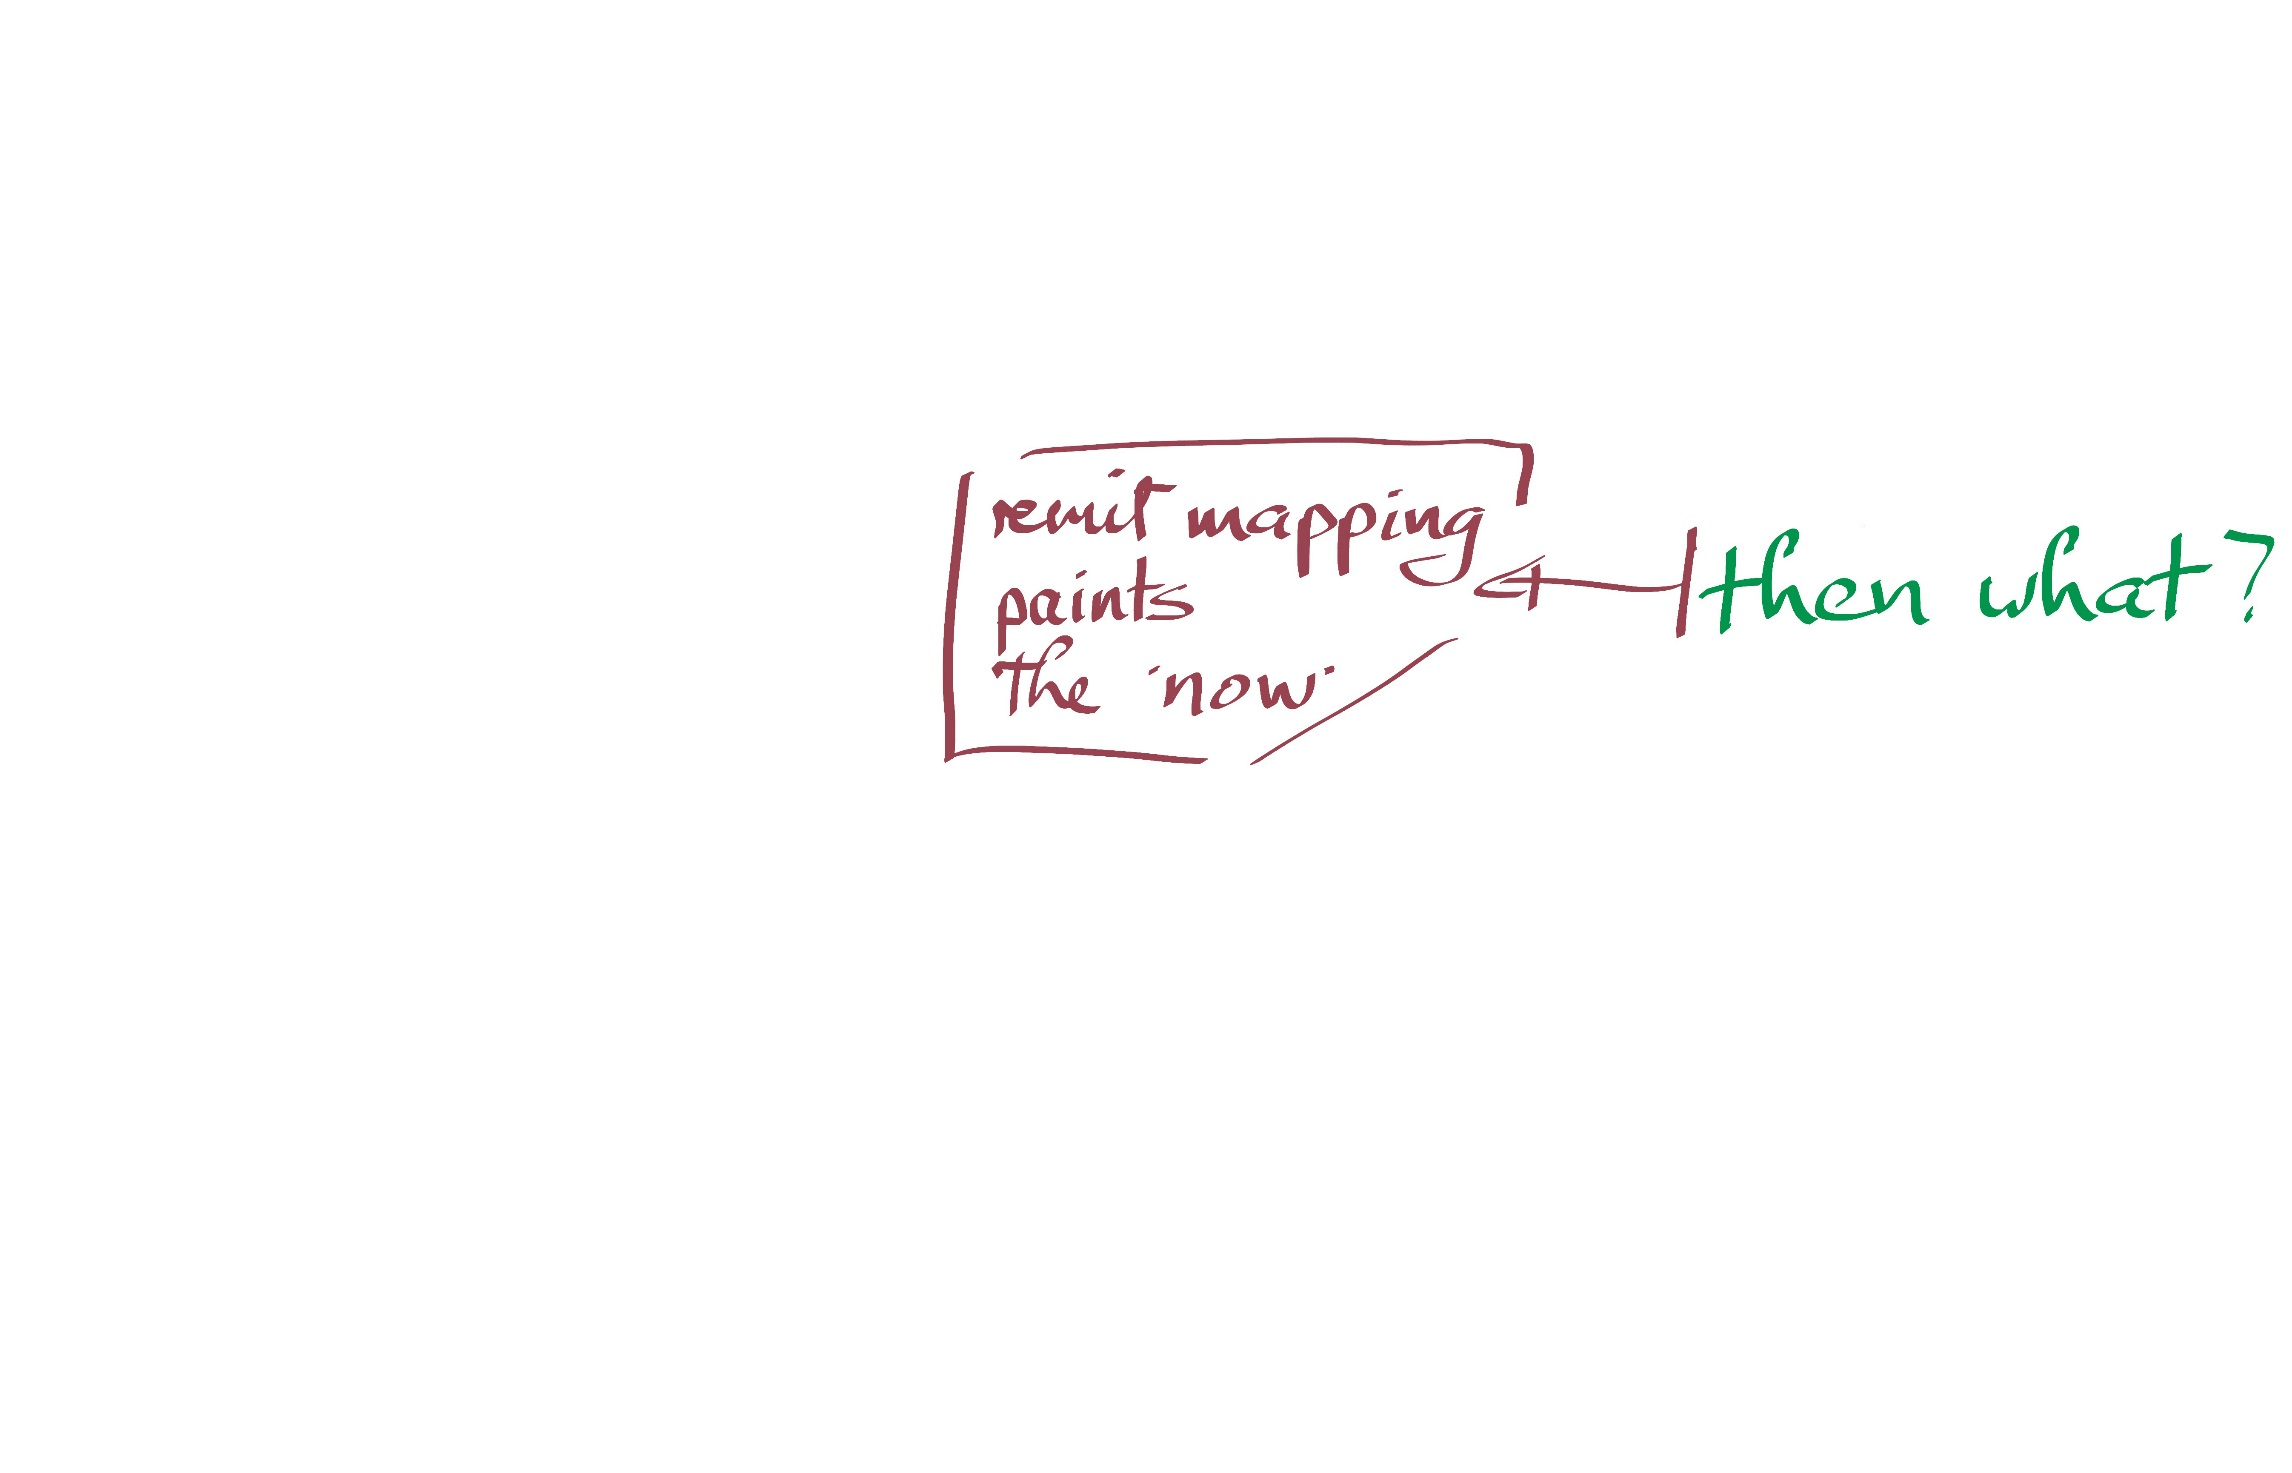 remit mapping
paints
the 'now'
then what?